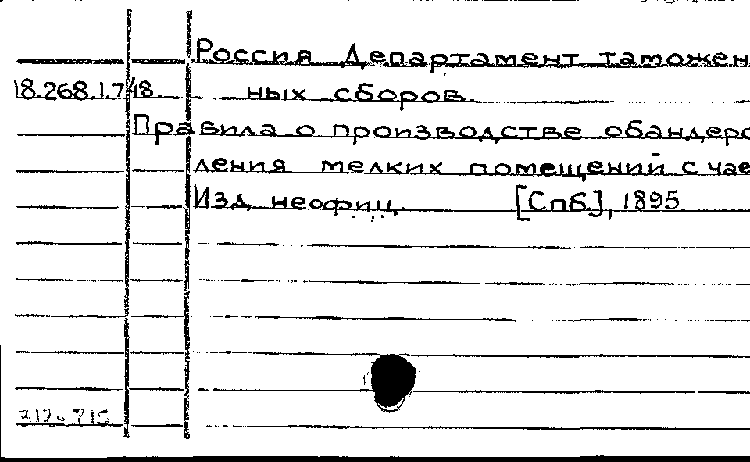 Россия Департамент таможен
18.268.1.7/18 ных сборов.
Правила о производстве обандеро
ления мелких помещений с чае
Изд. неофиц. [Спб], 1895